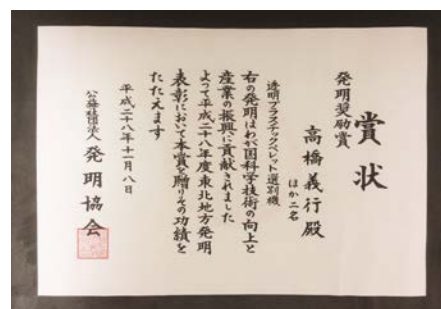 賞状
発明奨励賞
高橋義行殿
ほか二名
透明プラスチックペレット選別機
右の発明はわが国科学技術の向上と
産業の振興に貢献されました
よって平成二十八年度東北地方発明
表彰において本賞を贈りその功績を
たたえます
平成二十八年十一月八日
公益社団法人 発明協会